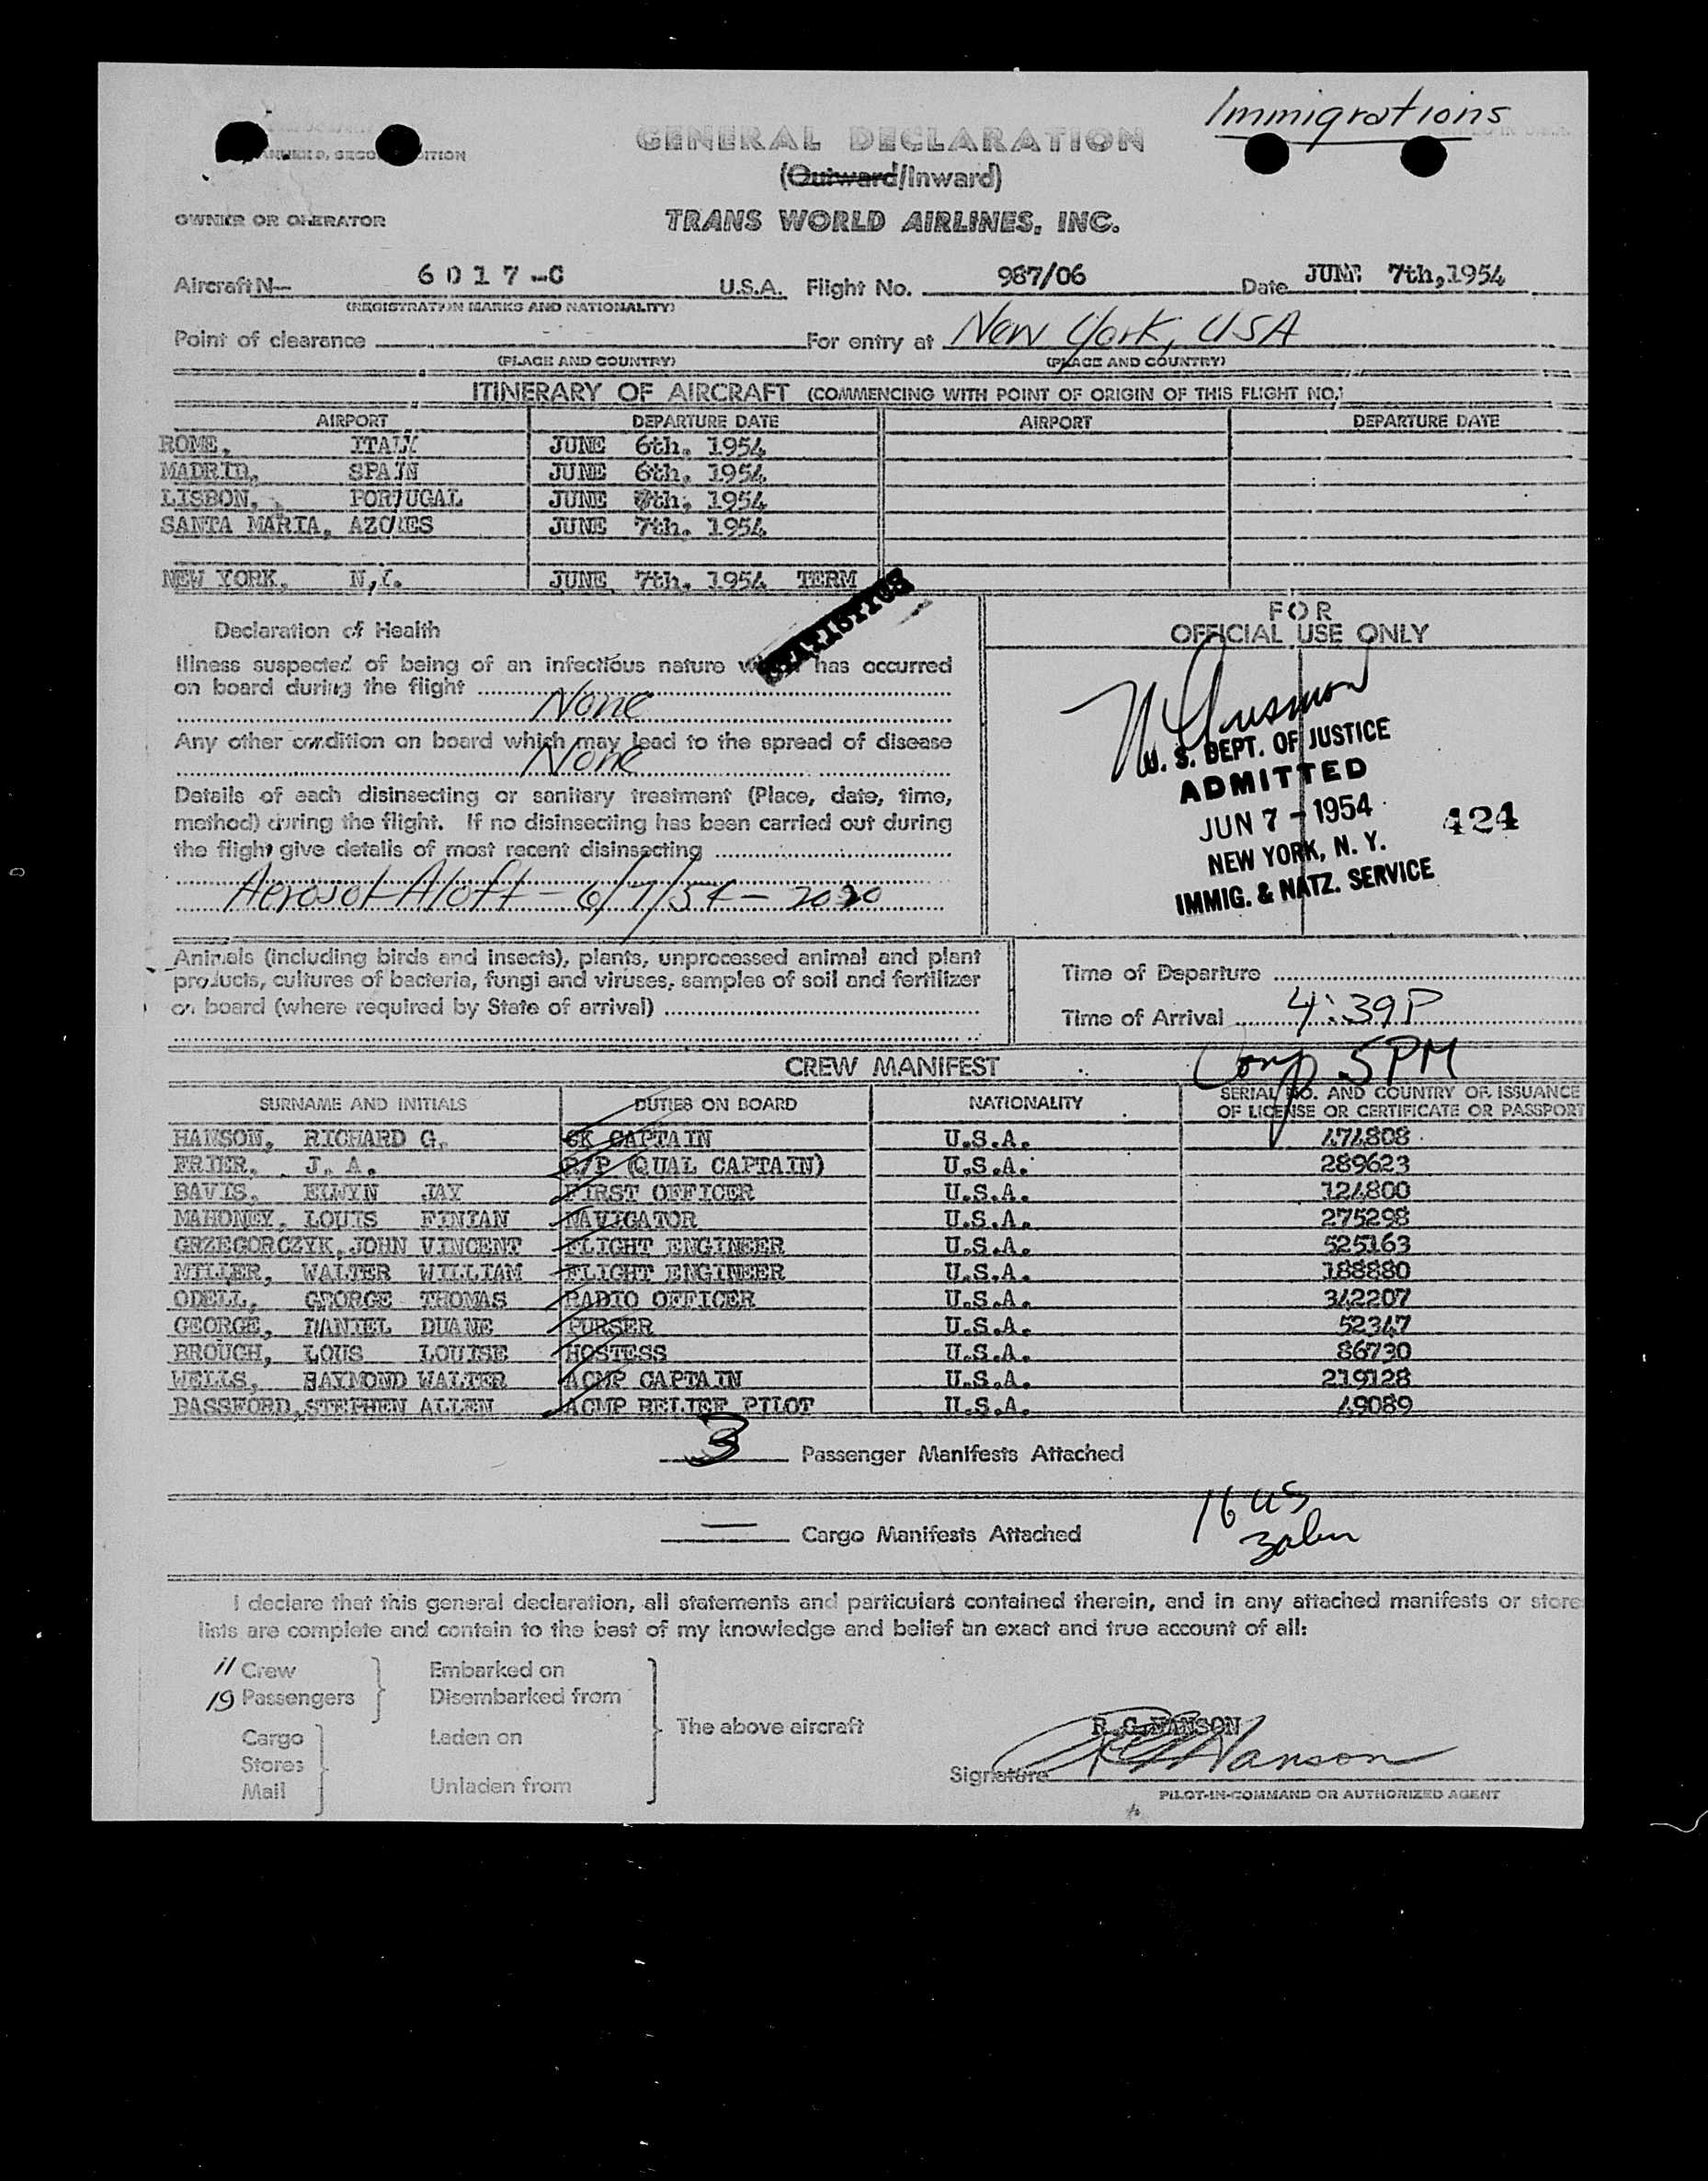 Immigrations
GENERAL DECLARATION
(Outward/Inward)
OWNER OR OPERATOR
TRANS WORLD AIRLINES, INC.
Aircraft N— 6017-C U.S.A. Flight No. 987/06 Date JUNE 7th, 1954
(REGISTRATION MARKS AND NATIONALITY)
Point of clearance For entry at New York, USA
(PLACE AND COUNTRY) (PLACE AND COUNTRY)
ITINERARY OF AIRCRAFT (COMMENCING WITH POINT OF ORIGIN OF THIS FLIGHT NO.)
AIRPORT DEPARTURE DATE AIRPORT DEPARTURE DATE
ROME, ITALY JUNE 6th. 1954
MADRID, SPAIN JUNE 6th. 1954
LISBON, PORTUGAL JUNE 1954
SANTA MARIA, AZORES JUNE 7th. 1954
NEW YORK, N.Y. JUNE 7th. 1954 TERM
STATISTICS
Declaration of Health
Illness suspected of being of an infectious nature has occurred
on board during the flight
None
Any other condition on board which may lead to the spread of disease
None
Details of each disinsecting or sanitary treatment (Place, date, time,
method) during the flight. If no disinsecting has been carried out during
the flight give details of most recent disinsecting
Aerosol Aloft - 6/7/54 - 2020
FOR
OFFICIAL USE ONLY
U. S. DEPT. OF JUSTICE
ADMITTED
JUN 7 - 1954
424
NEW YORK, N. Y.
IMMIG. & NATZ. SERVICE
Animals (including birds and insects), plants, unprocessed animal and plant
products, cultures of bacteria, fungi and viruses, samples of soil and fertilizer
on board (where required by State of arrival)
Time of Departure
Time of Arrival 4:39P
Comp 5PM
CREW MANIFEST
SURNAME AND INITIALS DUTIES ON BOARD NATIONALITY SERIAL NO. AND COUNTRY OF ISSUANCE
OF LICENSE OR CERTIFICATE OR PASSPORT
HANSON, RICHARD G. CK CAPTAIN U.S.A. 474808
FRIER, J. A. R/P (QUAL CAPTAIN) U.S.A. 289623
BAVIS, ELWYN JAY FIRST OFFICER U.S.A. 124800
MAHONEY, LOUIS FINIAN NAVIGATOR U.S.A. 275298
GRZEGORCZYK, JOHN VINCENT FLIGHT ENGINEER U.S.A. 525163
MILLER, WALTER WILLIAM FLIGHT ENGINEER U.S.A. 188880
ODELL, GEORGE THOMAS RADIO OFFICER U.S.A. 342207
GEORGE, DANIEL DUANE PURSER U.S.A. 52347
BROUCH, LOUS LOUISE HOSTESS U.S.A. 86730
WELLS, RAYMOND WALTER ACMP CAPTAIN U.S.A. 219128
BASSFORD, STEPHEN ALLEN ACMP RELIEF PILOT U.S.A. 49089
3 Passenger Manifests Attached
— Cargo Manifests Attached
16 US
3 alien
I declare that this general declaration, all statements and particulars contained therein, and in any attached manifests or store
lists are complete and contain to the best of my knowledge and belief an exact and true account of all:
11 Crew
19 Passengers
Cargo
Stores
Mail
Embarked on
Disembarked from
Laden on
Unladen from
The above aircraft
R. G. HANSON
Signature R G Hanson
PILOT-IN-COMMAND OR AUTHORIZED AGENT